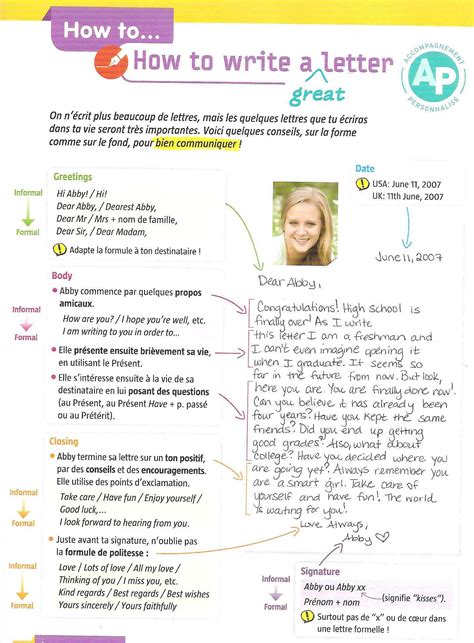 How to...
How to write a letter
great
ACCOMPAGNEMENT
AP
PERSONNALISÉ
On n'écrit plus beaucoup de lettres, mais les quelques lettres que tu écriras
dans ta vie seront très importantes. Voici quelques conseils, sur la forme
comme sur le fond, pour bien communiquer !
Greetings
Informal
Formal
Hi Abby! / Hi!
Dear Abby, / Dearest Abby,
Dear Mr / Mrs + nom de famille,
Dear Sir, / Dear Madam,
! Adapte la formule à ton destinataire !
Date
! USA: June 11, 2007
UK: 11th June, 2007
June 11, 2007
Dear Abby,
Congratulations! High School is
finally over! As I write
this letter I am a freshman and
I can't even imagine opening it
when I graduate. It seems so
far in the future from now. But look,
here you are. You are finally done now!
Can you believe it has already been
four years? Have you kept the same
friends? Did you end up getting
good grades? Also, what about
college? Have you decided where you
are going yet? Always remember you
are a smart girl. Take care of
yourself and have fun! The world
is waiting for you!
Love Always,
Abby ♡
Body
Informal
Formal
• Abby commence par quelques propos
amicaux.
How are you? / I hope you're well, etc.
I am writing to you in order to...
• Elle présente ensuite brièvement sa vie,
en utilisant le Présent.
• Elle s'intéresse ensuite à la vie de sa
destinataire en lui posant des questions
(au Présent, au Present Have + p. passé
ou au Prétérit).
Closing
• Abby termine sa lettre sur un ton positif,
par des conseils et des encouragements.
Elle utilise des points d'exclamation.
Informal
Formal
Take care / Have fun / Enjoy yourself /
Good luck,...
I look forward to hearing from you.
• Juste avant ta signature, n'oublie pas
la formule de politesse :
Informal
Formal
Love / Lots of love / All my love /
Thinking of you / I miss you, etc.
Kind regards / Best regards / Best wishes
Yours sincerely / Yours faithfully
Signature
Informal
Formal
Abby ou Abby xx
(signifie "kisses").
Prénom + nom
! Surtout pas de "x" ou de cœur dans
une lettre formelle !